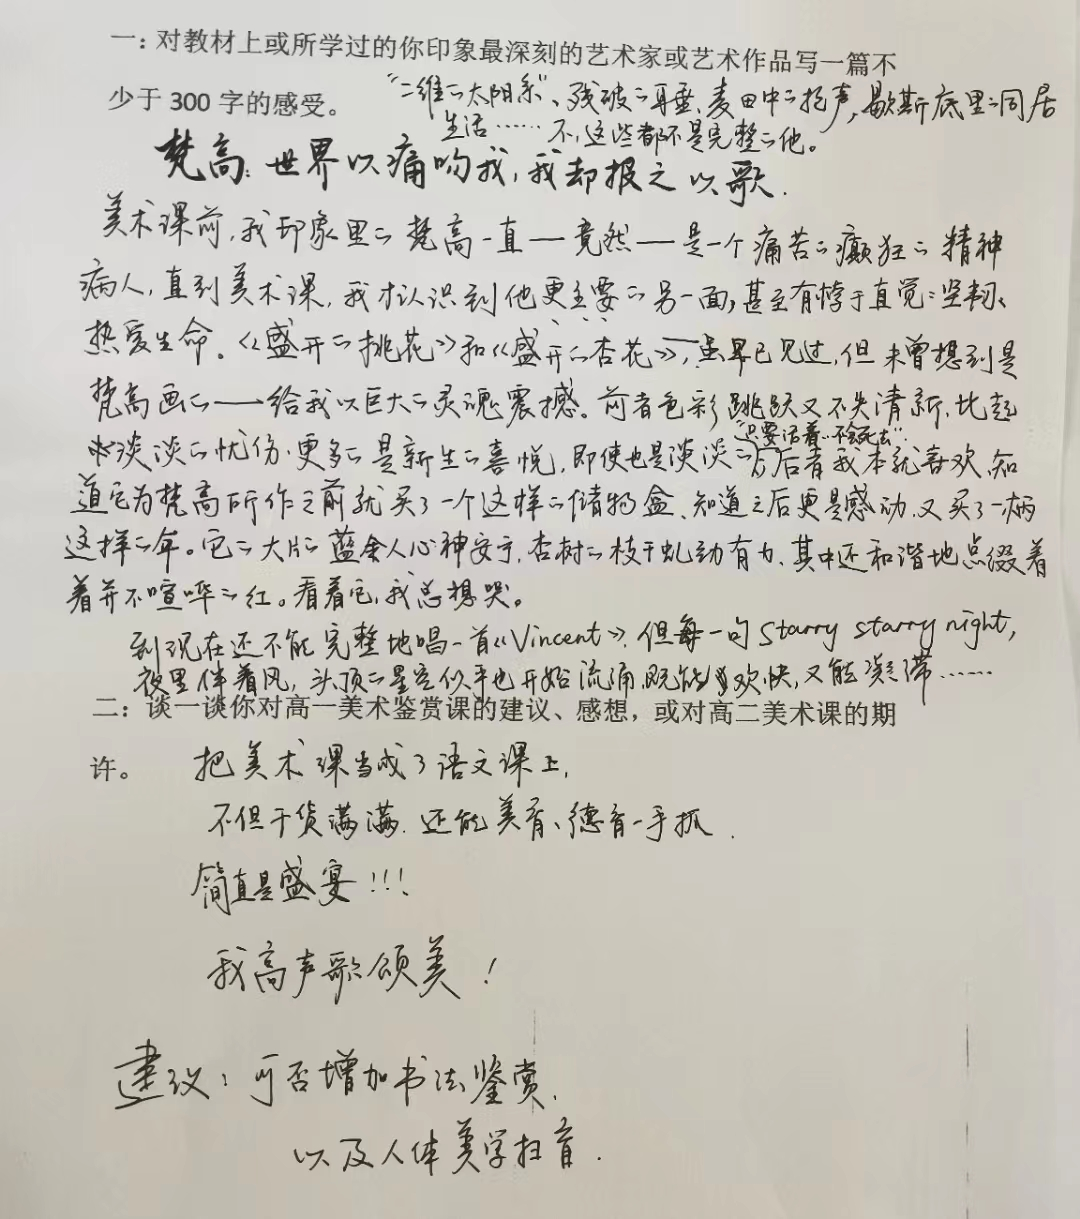 一：对教材上或所学过的你印象最深刻的艺术家或艺术作品写一篇不
少于300字的感受。
“二维的太阳系”、残破的耳垂、麦田中的枪声，歇斯底里的同居
生活……不，这些都不是完整的他。
梵高：世界以痛吻我，我却报之以歌.
美术课前，我印象里的梵高一直——竟然——是一个痛苦的癫狂的精神
病人，直到美术课，我才认识到他更主要的另一面，甚至有悖于直觉：坚韧、
热爱生命。《盛开的挑花》和《盛开的杏花》，虽早已见过，但未曾想到是
梵高画的——给我以巨大的灵魂震撼。前者色彩跳跃又不失清新，比起
淡淡的忧伤，更多的是新生的喜悦，即使也是淡淡的，后者我本就喜欢，知
“只要活着…不会死去”
道它为梵高所作之前就买了一个这样的储物盒、知道之后更是感动，又买了一柄
这样的伞。它的大片的蓝令人心神安宁，杏树的枝干虬劲有力、其中还和谐地点缀着
着并不喧哗的红。看着它，我总想哭。
到现在还不能完整地唱一首《Vincent》，但每一句starry starry night，
夜里伴着风，头顶的星空似乎也开始流涌，既能欢快，又能凝滞……
二：谈一谈你对高一美术鉴赏课的建议、感想，或对高二美术课的期
许。
把美术课当成了语文课上，
不但干货满满，还能美育、德育一手抓.
简直是盛宴!!!
我高声歌颂美！
建议：可否增加书法鉴赏、
以及人体美学扫盲.